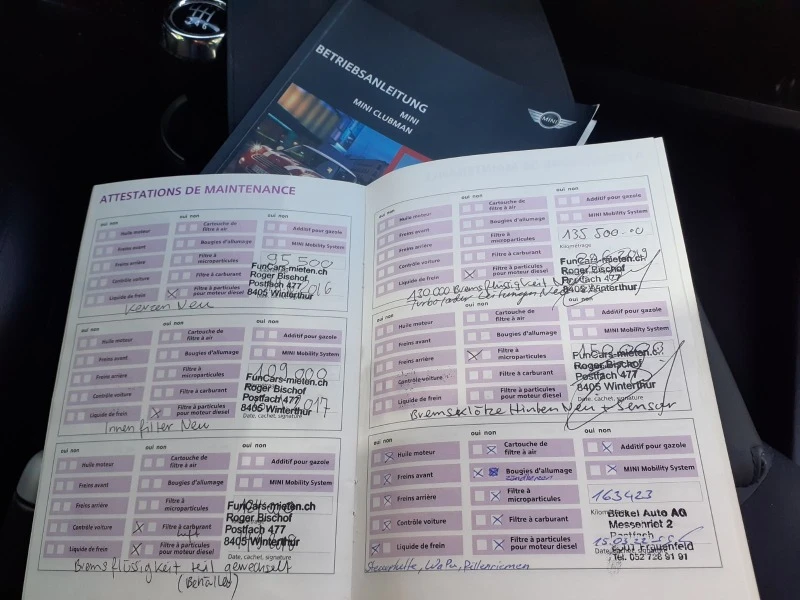 BETRIEBSANLEITUNG
MINI
MINI CLUBMAN
MINI
ATTESTATIONS DE MAINTENANCE
oui non
oui non
oui non
Huile moteur
Cartouche de filtre à air
Additif pour gazole
Freins avant
Bougies d'allumage
MINI Mobility System
Freins arrière
Filtre à microparticules
95 500
Contrôle voiture
Filtre à carburant
Liquide de frein
Filtre à particules pour moteur diesel
FunCars-mieten.ch
Roger Bischof
Postfach 477
8405 Winterthur
2016
Kerzen Neu
oui non
oui non
oui non
Huile moteur
Cartouche de filtre à air
Additif pour gazole
Freins avant
Bougies d'allumage
MINI Mobility System
Freins arrière
Filtre à microparticules
109 000
Contrôle voiture
Filtre à carburant
Liquide de frein
Filtre à particules pour moteur diesel
FunCars-mieten.ch
Roger Bischof
Postfach 477
8405 Winterthur
2017
Date, cachet, signature
Innenfilter Neu
oui non
oui non
oui non
Huile moteur
Cartouche de filtre à air
Additif pour gazole
Freins avant
Bougies d'allumage
MINI Mobility System
Freins arrière
Filtre à microparticules
Contrôle voiture
Filtre à carburant
Liquide de frein
Filtre à particules pour moteur diesel
FunCars-mieten.ch
Roger Bischof
Postfach 477
8405 Winterthur
Date, cachet, signature
Bremsflüssigkeit teil gewechselt
(Behälter)
oui non
oui non
oui non
Huile moteur
Cartouche de filtre à air
Additif pour gazole
Freins avant
Bougies d'allumage
MINI Mobility System
Freins arrière
Filtre à microparticules
135 500
Kilométrage
Contrôle voiture
Filtre à carburant
Liquide de frein
Filtre à particules pour moteur diesel
FunCars-mieten.ch
Roger Bischof
Postfach 477
8405 Winterthur
2019
130.000 Bremsflüssigkeit
Turbolader Leitungen Neu
oui non
oui non
oui non
Huile moteur
Cartouche de filtre à air
Additif pour gazole
Freins avant
Bougies d'allumage
MINI Mobility System
Freins arrière
Filtre à microparticules
150.000
Contrôle voiture
Filtre à carburant
Liquide de frein
Filtre à particules pour moteur diesel
FunCars-mieten.c
Roger Bischof
Postfach 477
8405 Winterthur
Date, cachet, signature
Bremsklötze Hinten Neu + Sensor
oui non
oui non
oui non
Huile moteur
Cartouche de filtre à air
Additif pour gazole
Freins avant
Bougies d'allumage
Zündkerzen
MINI Mobility System
Freins arrière
Filtre à microparticules
163423
Contrôle voiture
Filtre à carburant
Liquide de frein
Filtre à particules pour moteur diesel
Bickel Auto AG
Messenriet 2
Postfach
Frauenfeld
Tel. 052 728 91 91
Steuerkette, WaPu, Rillenriemen